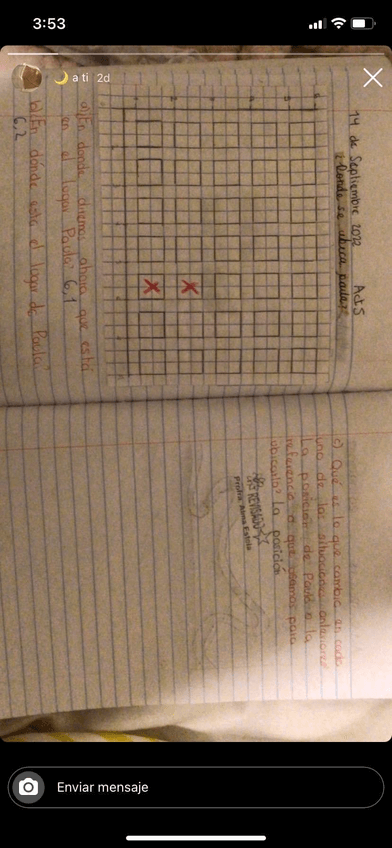 3:53
a ti 2d
14 de Septiembre 2022 Act 5
¿Donde se ubica paula?
a) En donde diremos ahora que está
en el lugar Paula? 6,1
b) En dónde esta el lugar de Paula?
6,2
c) Qué es lo que cambia en cada
una de las situaciones anteriores
La posición de Paula o la
referencia a que usamos para
ubicarla? La posición
REVISADO
Profra. Alma Estela
Enviar mensaje